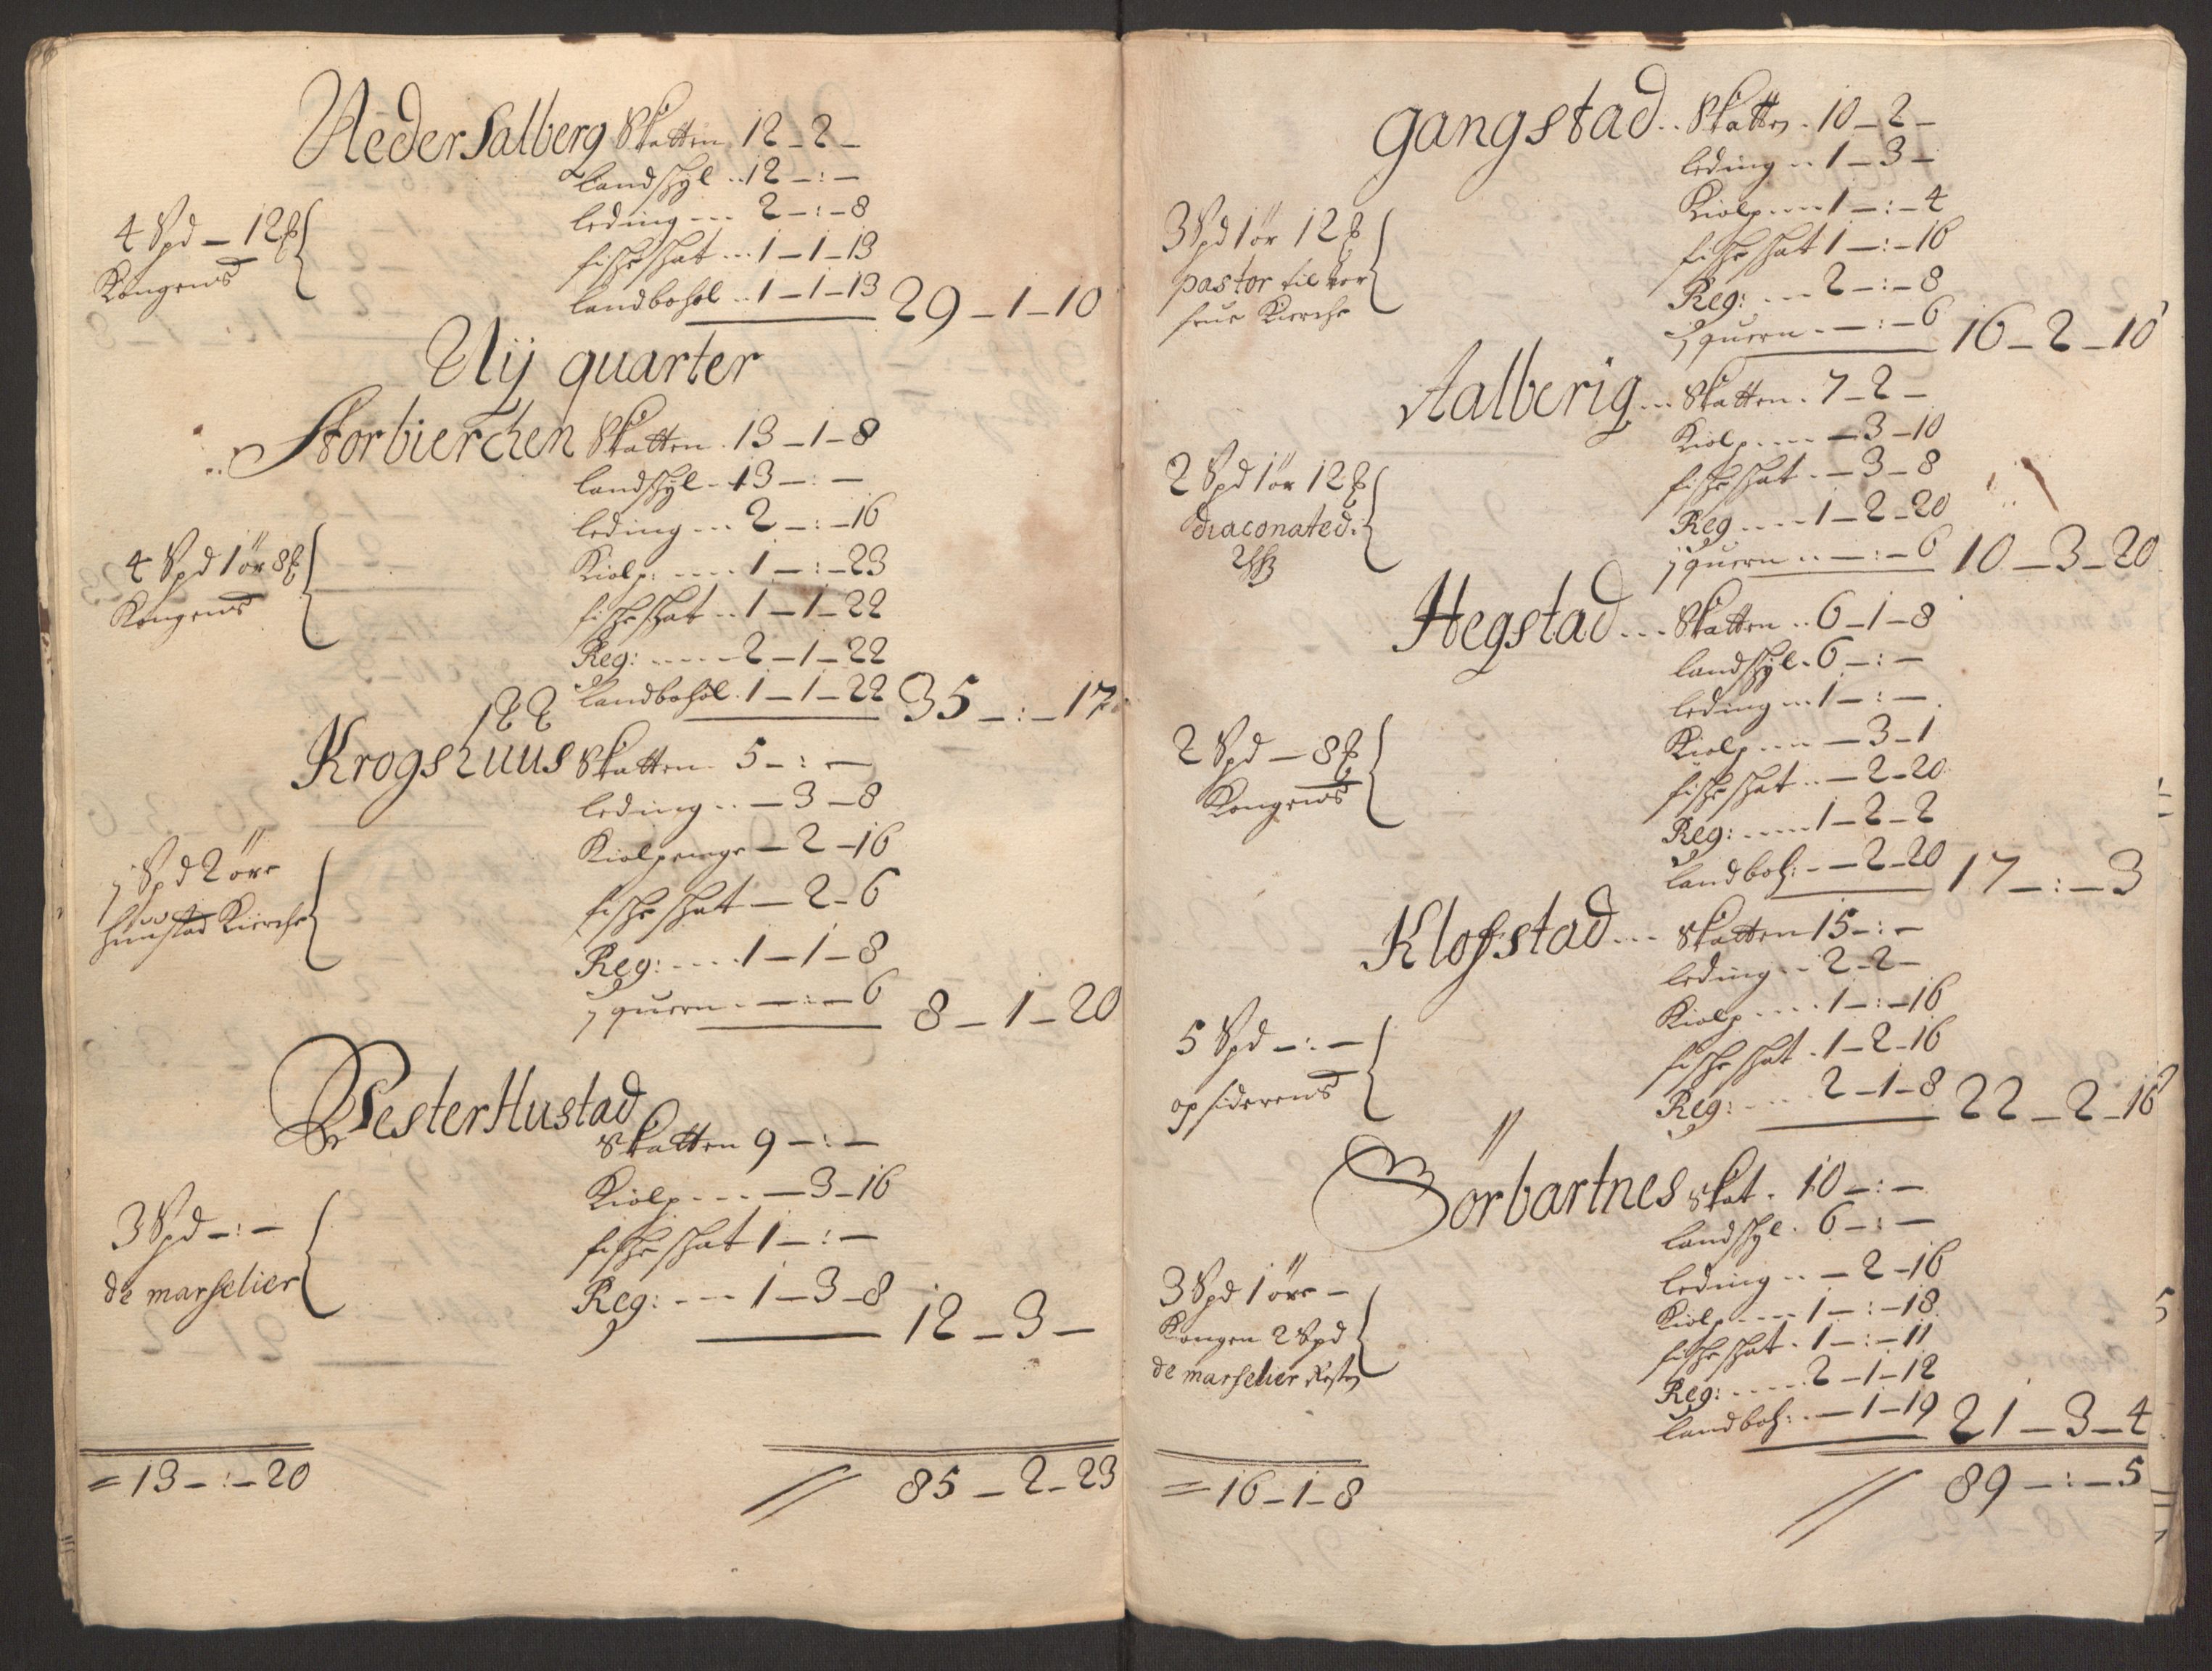 Neder Salberg Skatten 12 – 2 –
landskyl .. 12 – : –
4 Spd – 12 ß
leding --- 2 – : – 8
Kongens
fischeskat ... 1 – 1 – 13
landbohol .. 1 – 1 – 13 29 – 1 – 10
Nij quarter
Storbierchen Skatten . 13 – 1 – 8
landskyl - 13 – : –
leding --- 2 – : – 16
4 Spd 1 ör 8 ß
Kiolp: ---- 1 – : – 23
Kongens
fischeskat .. 1 – 1 – 22
Reg: ----- 2 – 1 – 22
landbohol . 1 – 1 – 22 35 – : – 17
Krogshuus Skatten 5 – : –
leding .. – 3 – 8
Kiolpenge – 2 – 16
1 Spd 2 öre
fische skat – 2 – 6
Hunstad Kierche
Reg: ---- 1 – 1 – 8
1 quern . – : – 6 8 – 1 – 20
Vester Hustad
Skatten 9 – : –
Kiolp --- – 3 – 16
3 Spd – : –
fische skat 1 – : –
de marselier
Reg: --- 1 – 3 – 8 12 – 3 –
= 13 – : – 20
// 85 – 2 – 23
gangstad .. Skatten . 10 – 2 –
leding .. 1 – 3 –
Kiolp ---- 1 – : – 4
3 Spd 1 ör 12 ß
fische skat 1 – : – 16
pastor til vor
Reg: --- 2 – : – 8
frue Kierche
1 quern . – : – 6 16 – 2 – 10
Aalberig ... Skatten . 7 – 2 –
Kiolp ---- – 3 – 10
2 Spd 1 ör 12 ß
fische skat . – 3 – 8
diaconated:
Reg ---- 1 – 2 – 20
1 quern .. – : – 6 10 – 3 – 20
Hegstad ... Skatten .. 6 – 1 – 8
landskyl . 6 – : –
leding ... 1 – : –
2 Spd – 8 ß
Kiolp ---- – 3 – 1
Kongens
fische skat .. – 2 – 20
Reg: ---- 1 – 2 – 2
landboh: - – 2 – 20 17 – : – 3
Klofstad ... Skatten 15 – : –
leding .. 2 – 2 –
Kiolp .... 1 – : – 16
5 Spd – : –
fische skat . 1 – 2 – 16
opsiderens
Reg: - ... 2 – 1 – 8 22 – 2 – 16
Sörbartnes skat . 10 – : –
landskyl . 6 – : –
leding .. – 2 – 16
3 Spd 1 öre –
Kiolp --- 1 – : – 18
Kongen 2 Spd
fische skat . 1 – : – 11
de marselier Resten
Reg: ----- 2 – 1 – 12
landboh: . – 1 – 19 21 – 3 – 4
= 16 – 1 – 8
// 89 – : – 5